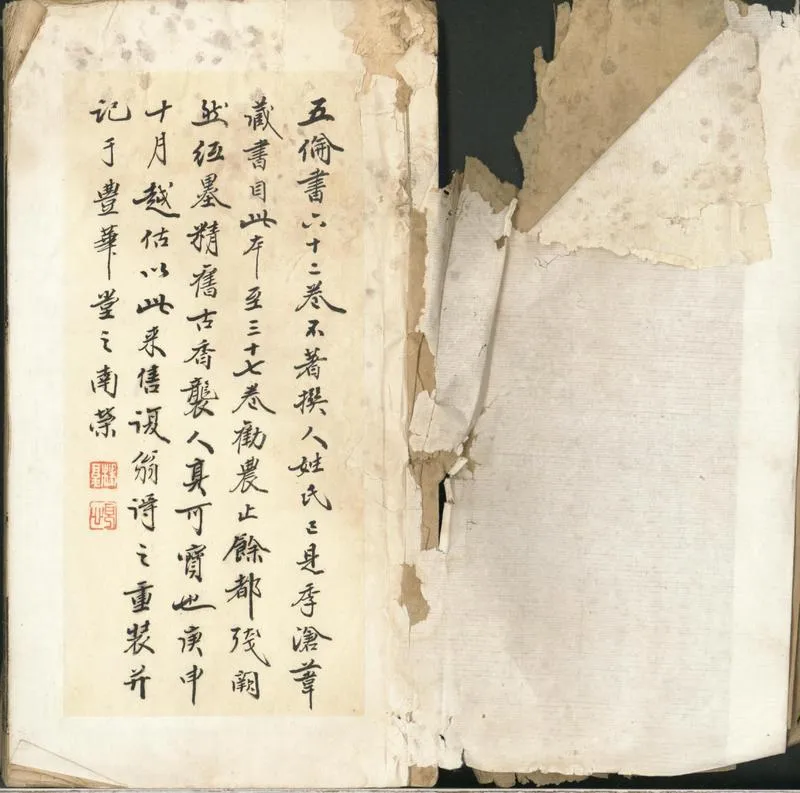 五倫書六十二卷不著撰人姓氏已見季滄葦
藏書目此本至三十七卷勸農止餘都殘闕
然紙墨精舊古香襲人真可寶也庚申
十月越估以此来售復翁得之重裝并
記于豊華堂之南榮